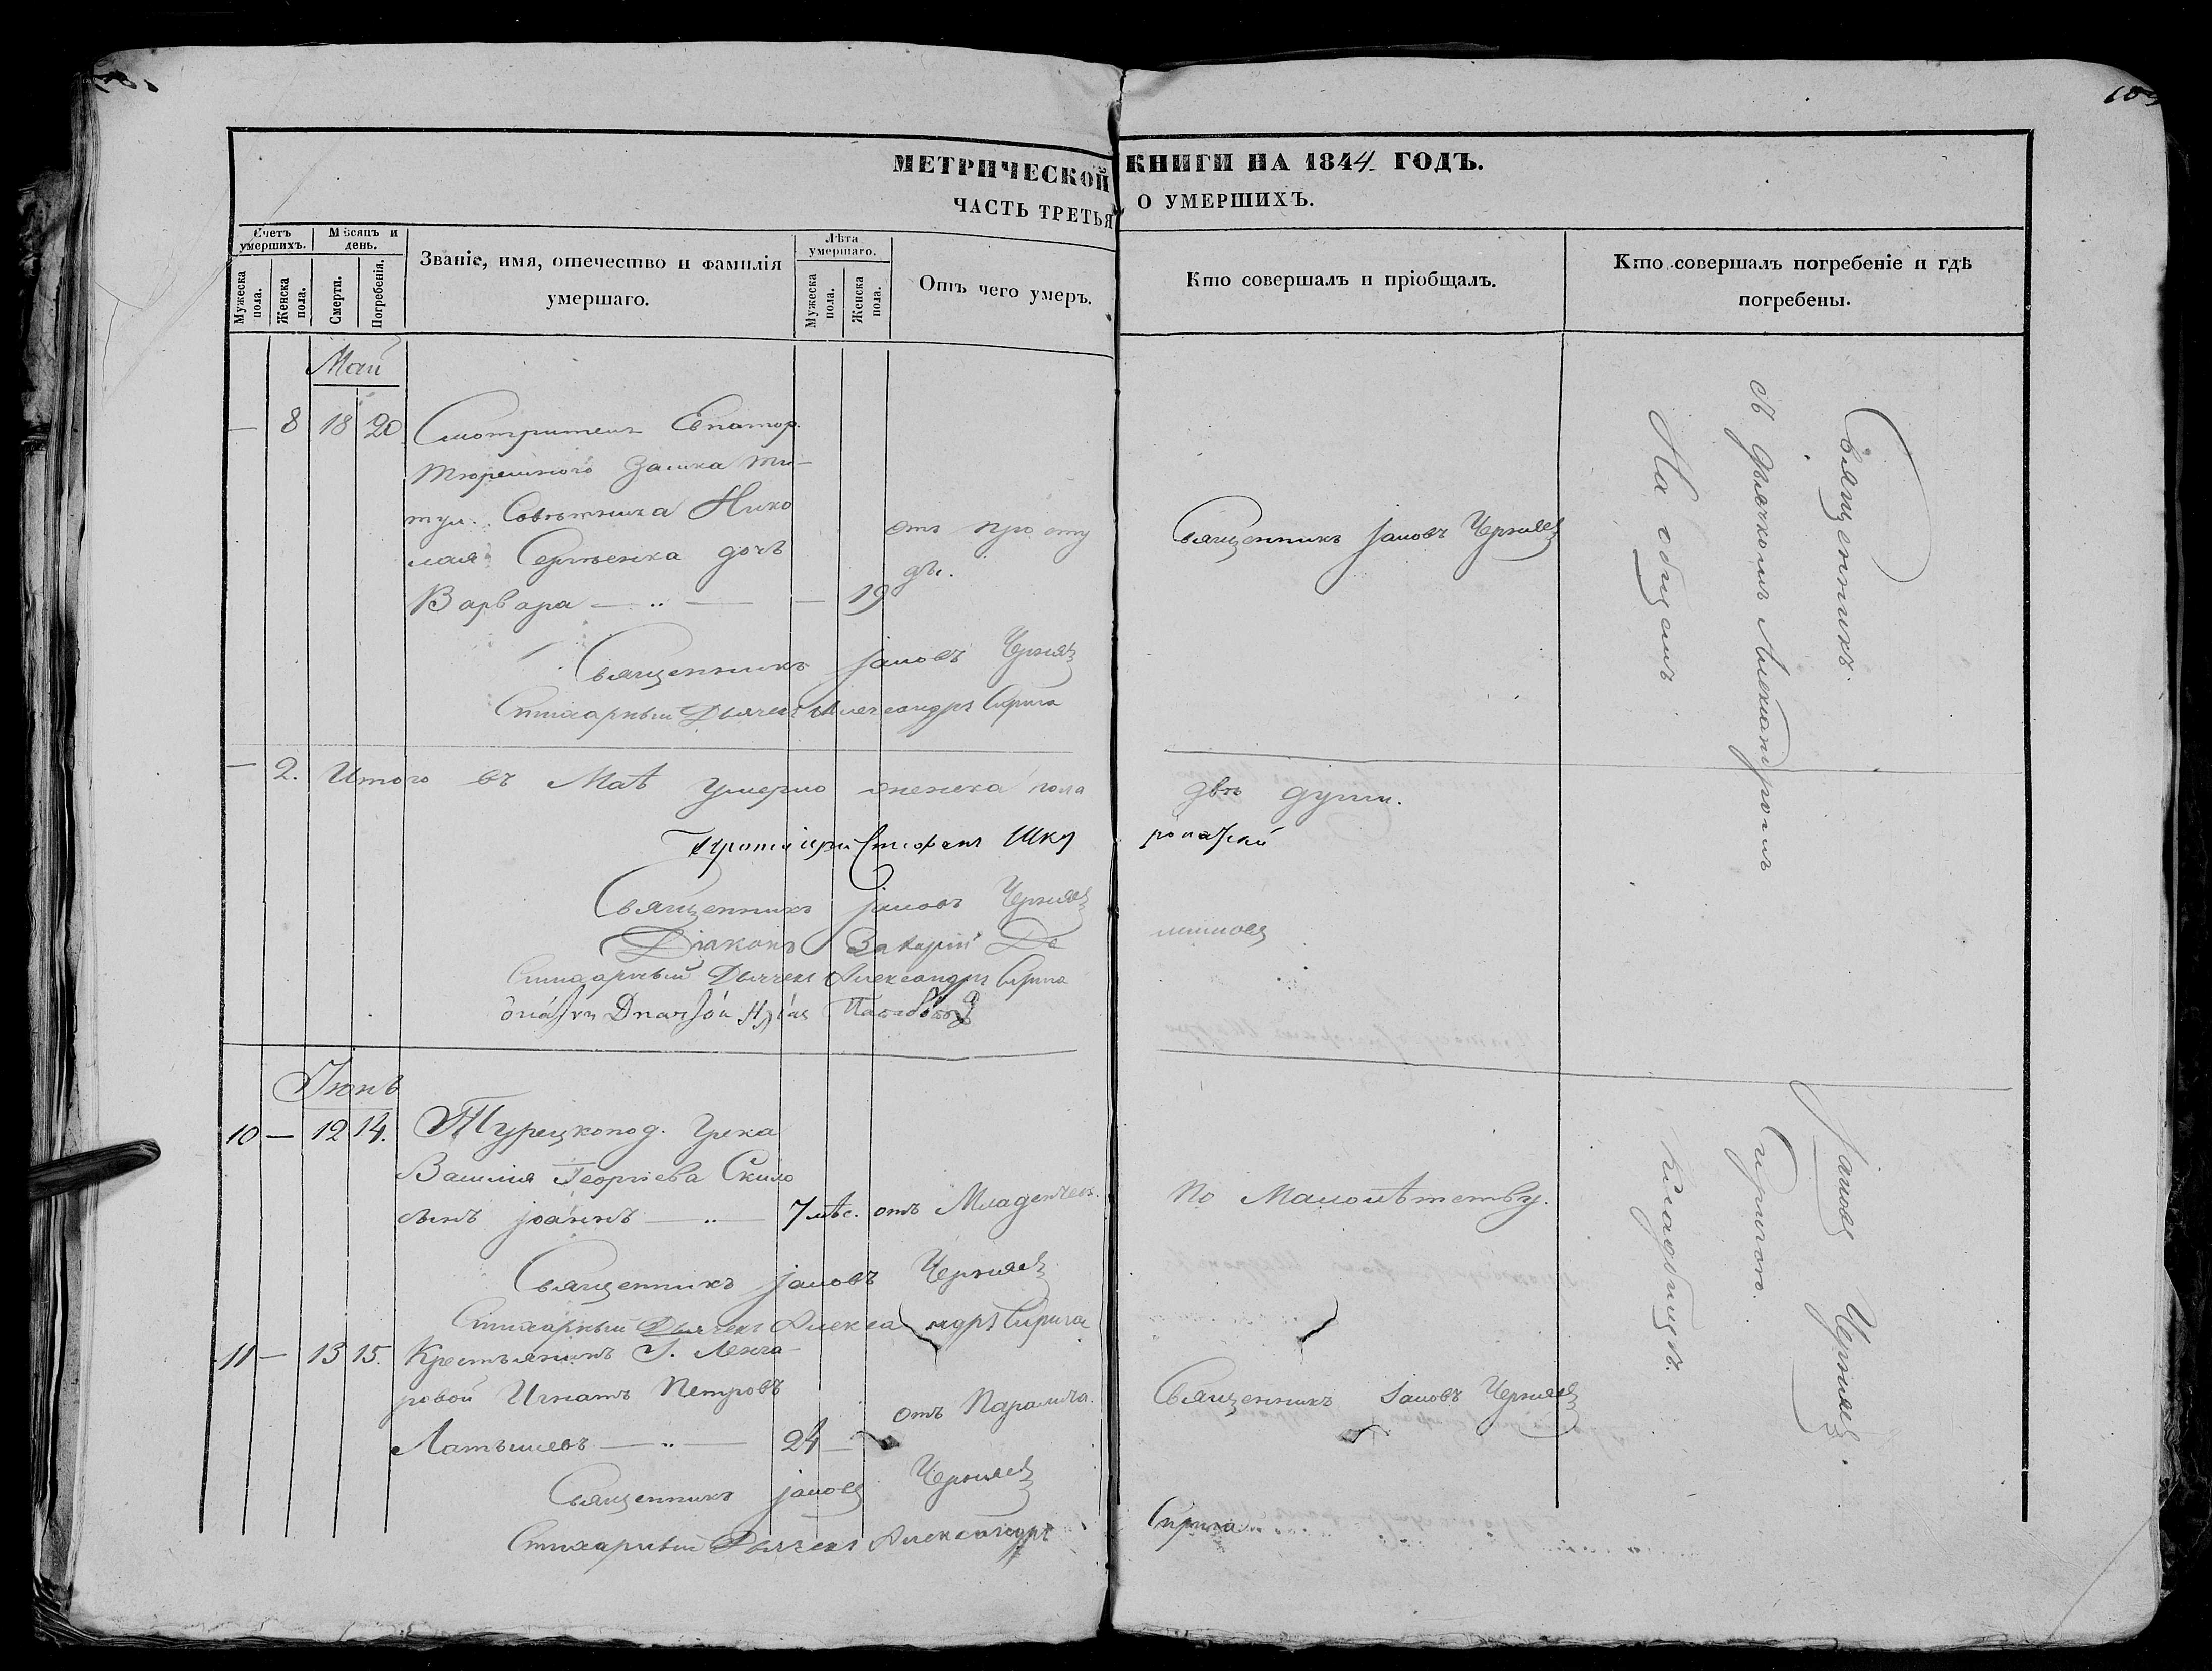 МЕТРИЧЕСКОЙ КНИГИ НА 1844 ГОДЪ.
ЧАСТЬ ТРЕТЬЯ О УМЕРШИХЪ.
Счетъ умершихъ.
Мѣсяцъ и день.
Званіе, имя, отечество и фамилія умершаго.
Лѣта умершаго.
Отъ чего умеръ.
Кто совершалъ и пріобщалъ.
Кто совершалъ погребеніе и гдѣ погребены.
Мужеска пола.
Женска пола.
Смерти.
Погребенія.
Мужеска пола.
Женска пола.
Май
— 8 18 20 Смотритель Евпатор.
тюремного Замка ти-
тул. Совѣтника Нико
лая Сергѣенка дочь
Варвара — „ — — 19
отъ просту
ды.
Священникъ Іаковъ Черняев
Священникъ Іаковъ Черняев
Стихарный Дьячекъ Александръ Сирига
— 2. Итого въ Маѣ умерло женска пола двѣ души.
Протоіерей Стефанъ
Священникъ Іаковъ Черняев
Діаконъ Захарій
Стихарный Дьячекъ Александръ Сирига
Іюнь
10 — 12 14. Турецкопод. Грека
Василія Георгіева Скило
сынъ Іоаннъ — „ — 7 мѣс. отъ Младенческ. По Малолѣтству.
Священникъ Іаковъ Черняев
Стихарный Дьячекъ Александръ Сирига
11 — 13 15. Крестьянинъ
ровой Игнатъ Петровъ
Латышевъ — „ — 24 —
отъ Паралича.
Священникъ Іаковъ Черняев
Священникъ Іаковъ Черняев
Стихарный Дьячекъ Александръ Сирига
Священникъ Іаковъ Черняев.
Съ Дьячкомъ Александромъ Сиригою.
На общемъ кладбищѣ.